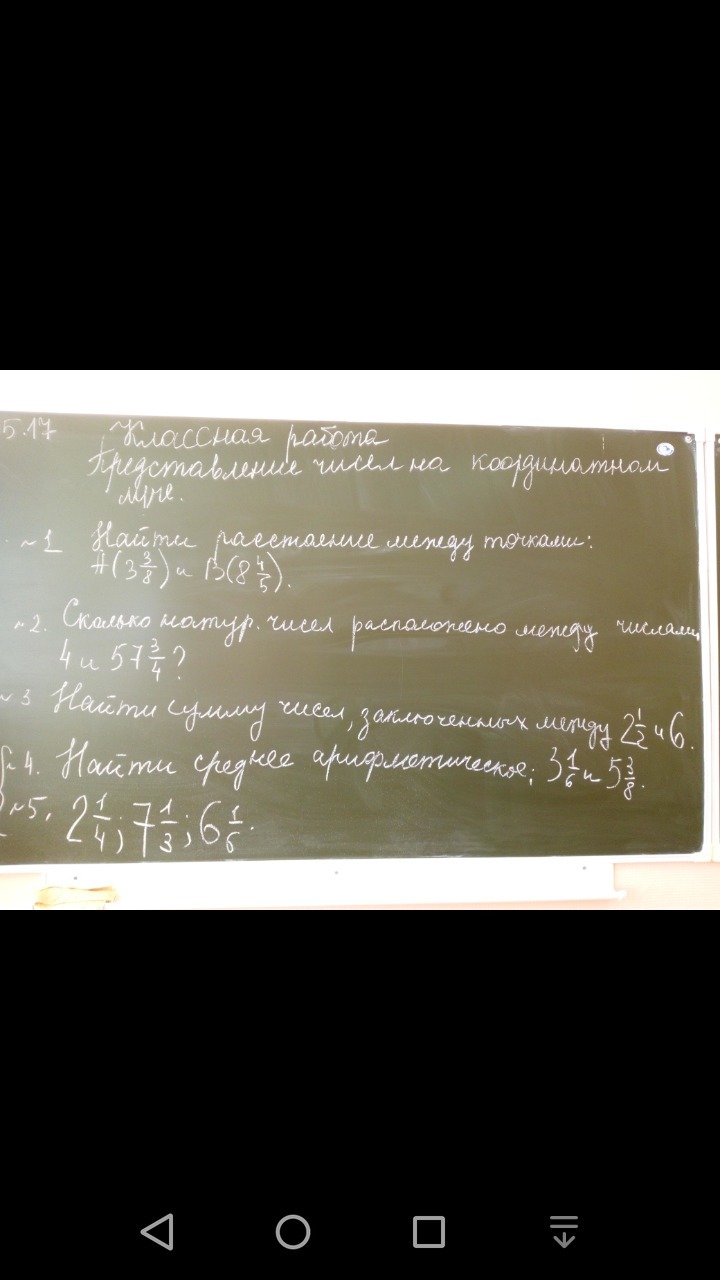 5.17 Классная работа
Представление чисел на координатном
луче.
~1 Найти расстояние между точками:
А(3 3/8) и В(8 4/5).
~2. Сколько натур. чисел расположено между числами
4 и 57 3/4?
~3 Найти сумму чисел, заключенных между 2 1/2 и 6.
~4. Найти среднее арифметическое: 3 1/6 и 5 3/8.
~5. 2 1/4; 7 1/3; 6 1/6.